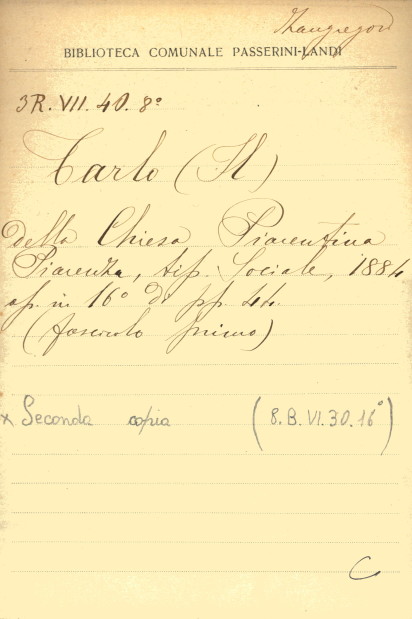 BIBLIOTECA COMUNALE PASSERINI-LANDI
3R. VII. 40. 8°
Tarlo (Il)
della Chiesa Piacentina
Piacenza, tip. Sociale, 1884
op. in 16° di pp. 44.
(fascicolo primo)
x Seconda copia (8. B. VI. 30. 16°)
C